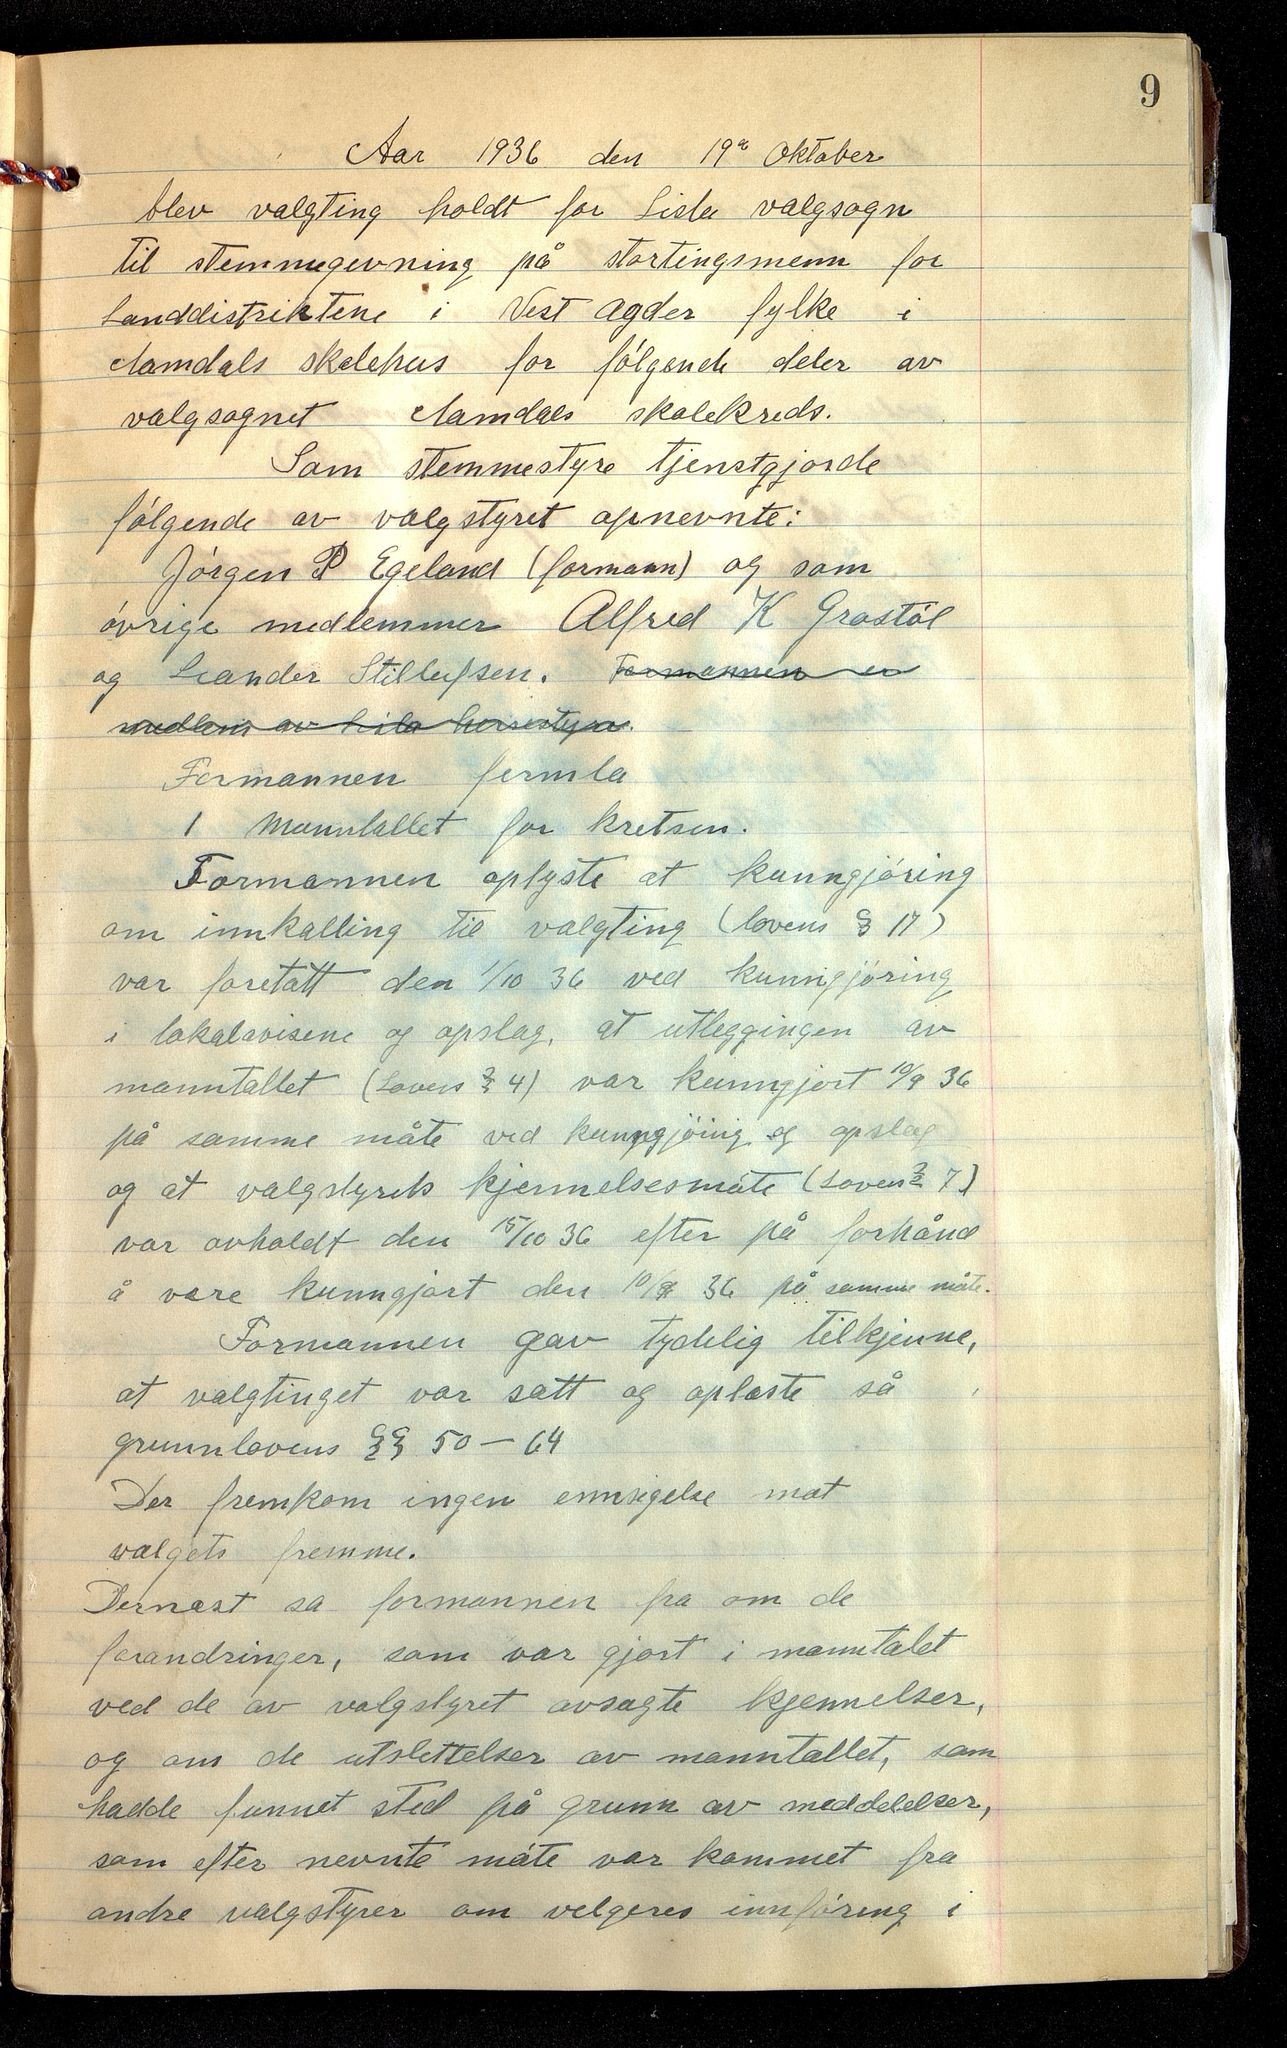 9
Aar 1936 den 19de Oktober
blev valgting holdt for Lista valgsogn
til stemmegevning på stortingsmenn for
landdistriktene i Vest Agder fylke i
Aamdals skolehus for følgende deler av
valgsognet Aamdals skolekreds.
Som stemmestyre tjenstgjorde
følgende av valgstyret opnevnte:
Jørgen P Egeland (formann) og som
øvrige medlemmer Alfred K Grostøl
og Leander Stillufsen. Formannen er
medlem av Lista herredstyre.
Formannen femla
1 Manntallet for kretsen.
Formannen oplyste at kunngjøring
om innkalling til valgting (lovens § 17)
var foretatt den 1/10 36 ved kunngjøring
i lokalavisene og opslag, at utleggingen av
manntallet (Lovens § 4) var kunngjort 10/9 36
på samme måte ved kunngjöing og opslag
og at valgstyrets kjennelsesmøte (Lovens § 7)
var avholdt den 15/10 36 efter på forhånd
å være kunngjort den 10/9 36 på samme måte.
Formannen gav tydelig tilkjenne,
at valgtinget var satt og oplæste så
grunnlovens §§ 50 – 64
Der fremkom ingen ennsigelse mot
valgets fremme.
Dernæst sa formannen fra om de
forandringer, som var gjort i manntalet
ved de av valgstyret avsagte kjennelser,
og om de utslettelser av manntallet, som
hadde funnet sted på grunn av meddelelser,
som efter nevnte møte var kommet fra
andre valgstyrer om velgeres innføring i